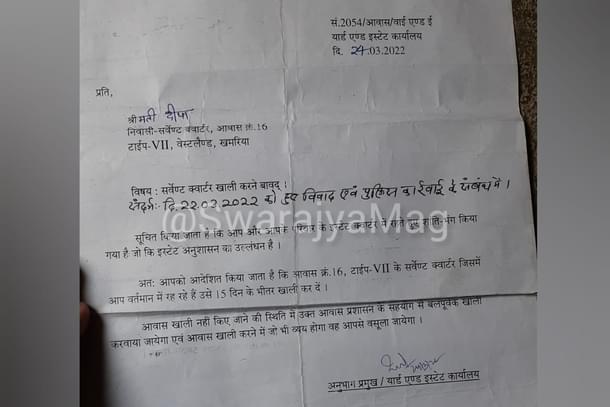 सं.2054/आवास/वाई एण्ड ई
यार्ड एण्ड इस्टेट कार्यालय
दि. 24.03.2022
प्रति,
श्रीमती दीपा
निवासी-सर्वेण्ट क्वार्टर, आवास क्रं.16
टाईप-VII, वेस्टलैण्ड, खमरिया
विषय : सर्वेण्ट क्वार्टर खाली करने बावद् ।
संदर्भः- दि. 22.03.2022 को हुए विवाद एवं पुलिस कार्रवाई के संबंध में ।
@SwarajyaMag
सूचित किया जाता है कि आप और आपके परिवार के इस्टेट क्वार्टर में रहते हुए शांति-भंग किया
गया है जो कि इस्टेट अनुशासन का उल्लंघन है ।
अतः आपको आदेशित किया जाता है कि आवास क्रं.16, टाईप-VII के सर्वेण्ट क्वार्टर जिसमें
आप वर्तमान में रह रहे हैं उसे 15 दिन के भीतर खाली कर दें ।
आवास खाली नहीं किए जाने की स्थिति में उक्त आवास प्रशासन के सहयोग से बलपूर्वक खाली
करवाया जायेगा एवं आवास खाली करने में जो भी व्यय होगा वह आपसे वसूला जायेगा ।
अनुभाग प्रमुख / यार्ड एण्ड इस्टेट कार्यालय